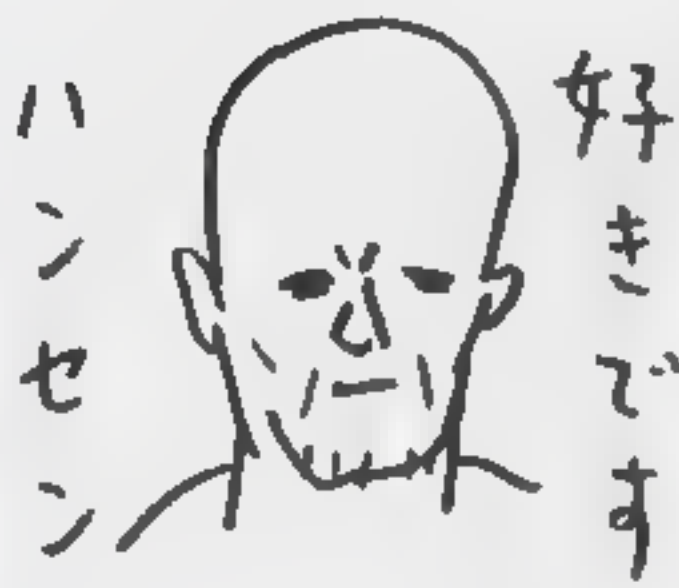 好きです
ハンセン